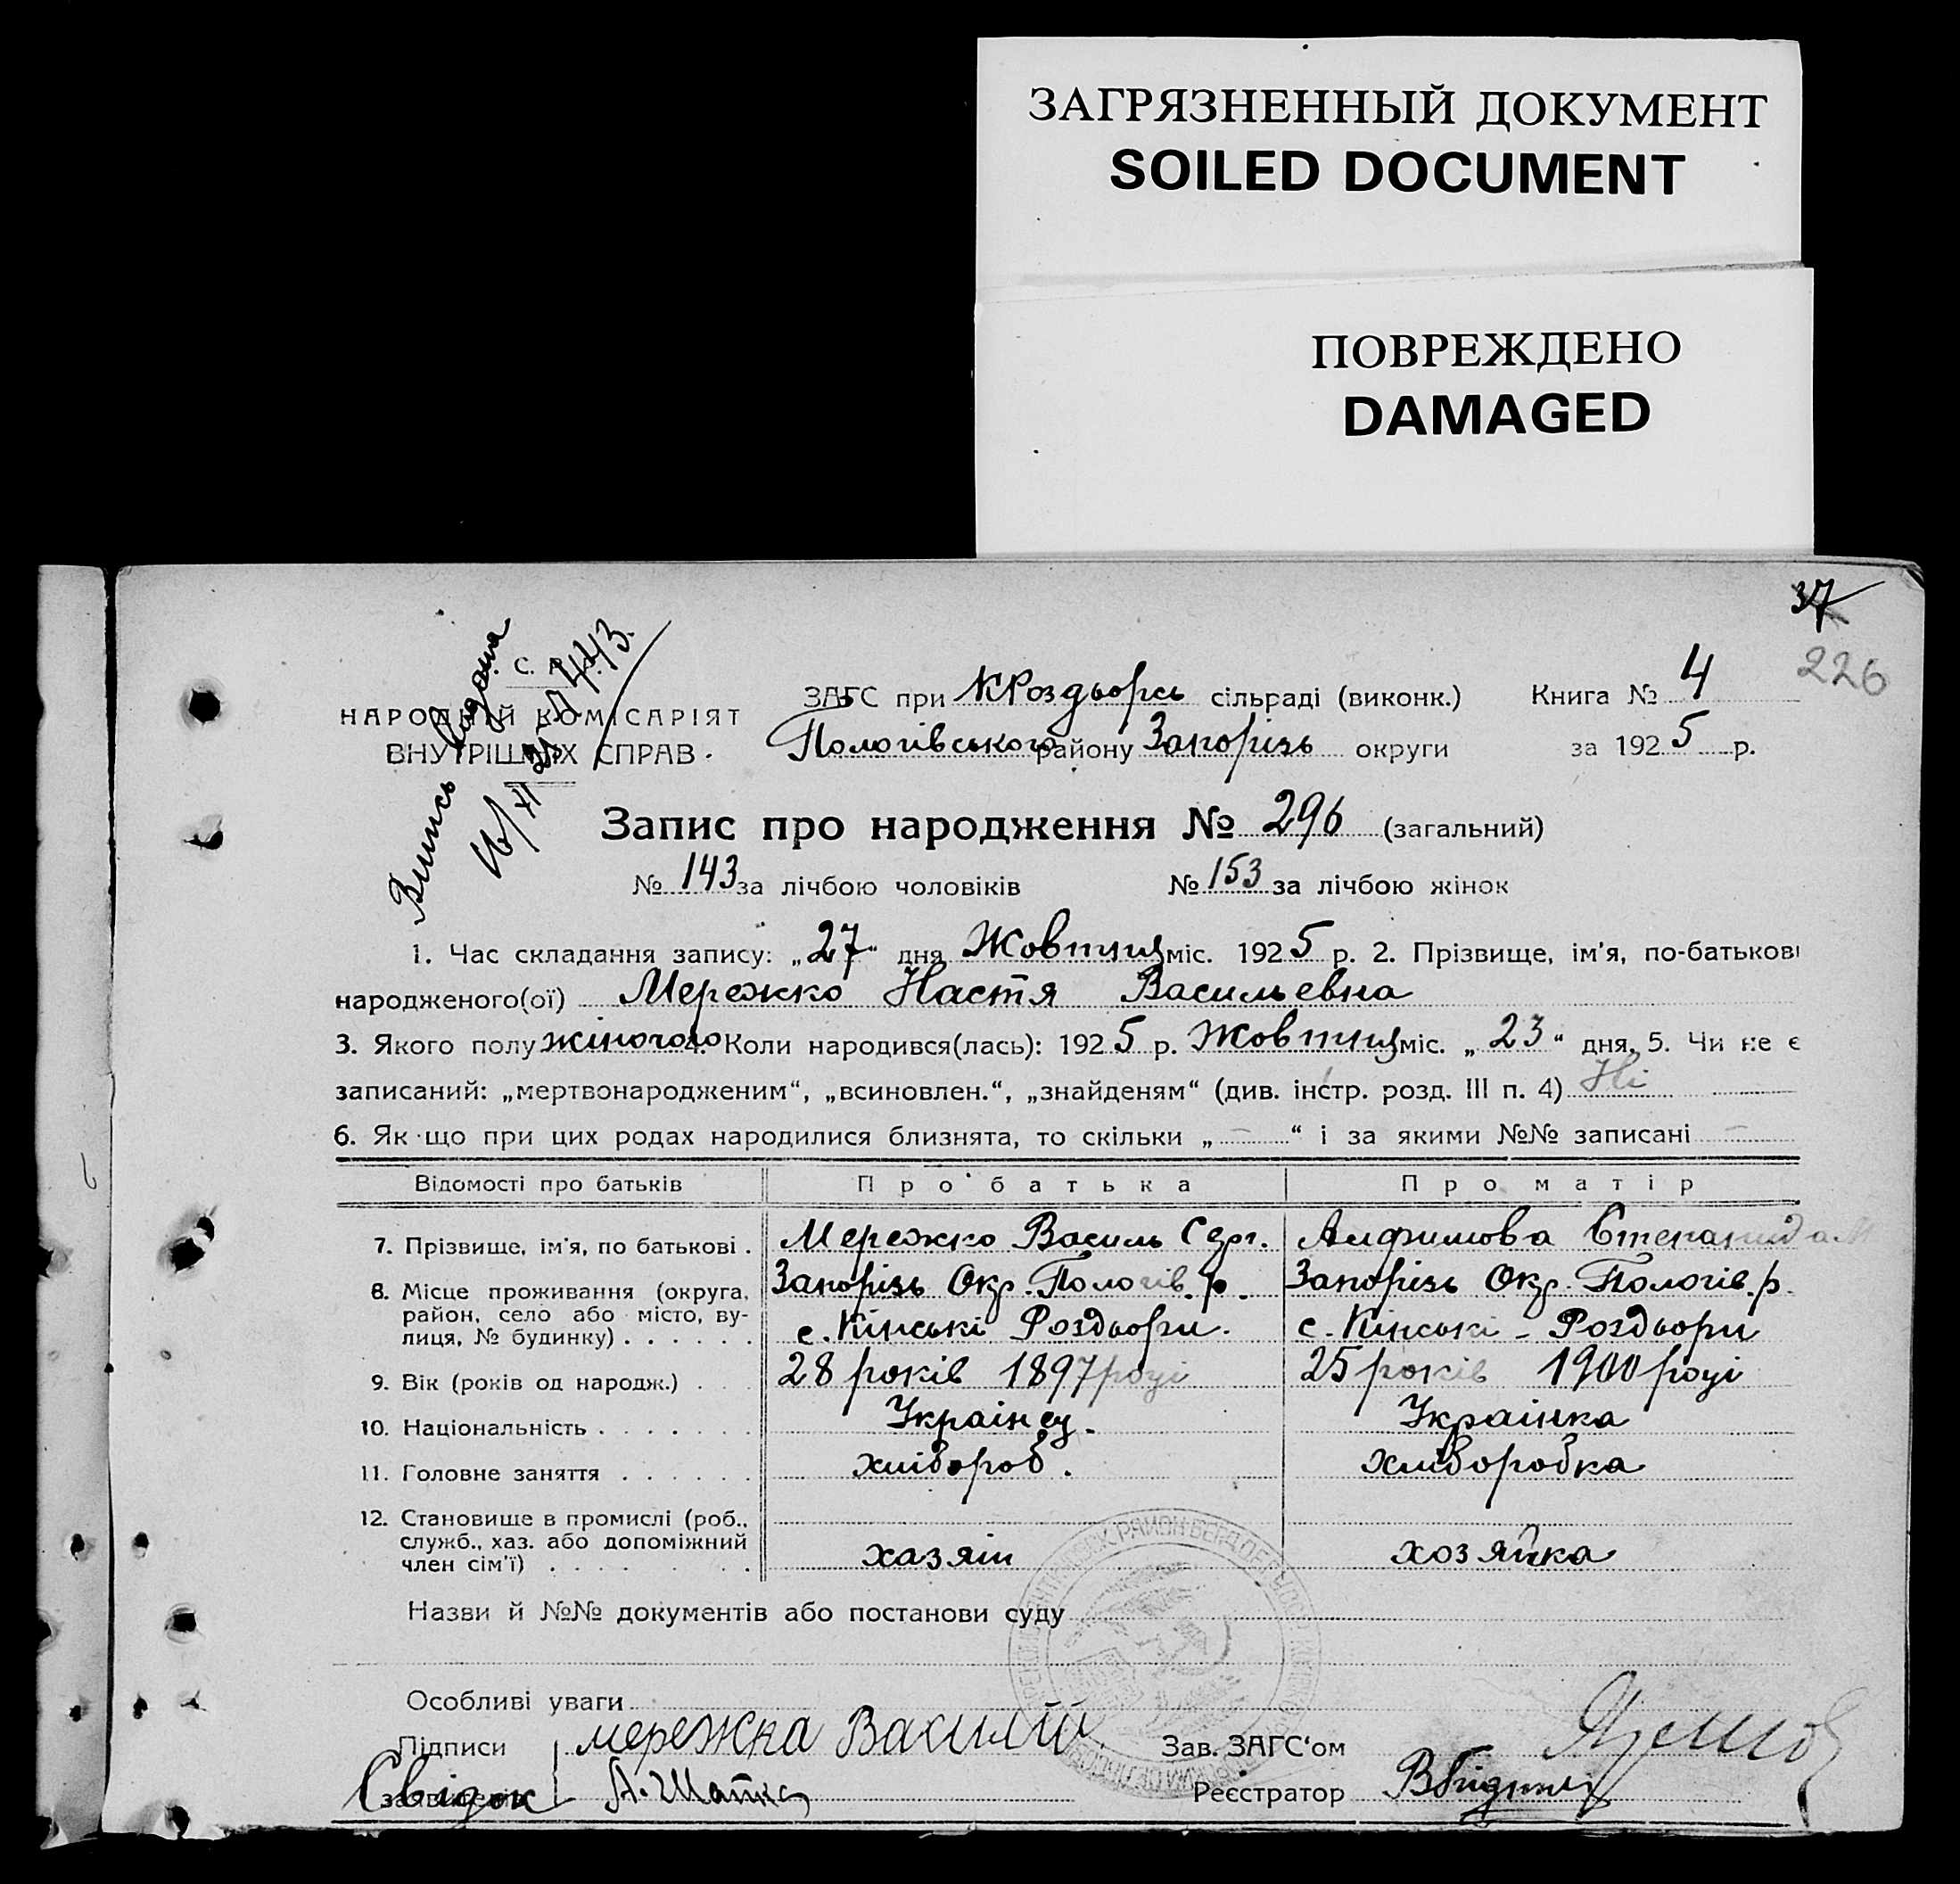 ЗАГРЯЗНЕННЫЙ ДОКУМЕНТ
SOILED DOCUMENT
ПОВРЕЖДЕНО
DAMAGED
37
226
Випись видана
НАРОДНІЙ КОМІСАРІЯТ
ВНУТРІШНІХ СПРАВ.
ЗАГС при КРоздьорсь сільраді (виконк.) Книга № 4
Пологівського району Запорізь округи за 1925 р.
Запис про народження № 296 (загальний)
№ 143 за лічбою чоловіків № 153 за лічбою жінок
1. Час складання запису: „27“ дня Жовтня міс. 1925 р. 2. Прізвище, ім'я, по-батькові
народженого(ої) Мережко Настя Васильевна
3. Якого полу жіночого 4. Коли народився(лась): 1925 р. Жовтня міс. „23“ дня. 5. Чи не є
записаний: „мертвонародженим“, „всиновлен.“, „знайденям“ (див. інстр. розд. III п. 4) Ні
6. Як що при цих родах народилися близнята, то скільки „ – “ і за якими №№ записані –
Відомості про батьків Про батька Про матір
7. Прізвище, ім'я, по батькові . Мережко Василь Серг. Алфимова Степанида М
8. Місце проживання (округа, Запорізь Окр. Пологів. р. Запорізь Окр. Пологів. р.
район, село або місто, ву-
лиця, № будинку) . . . . . . с. Кінські Роздьори. с. Кінські - Роздьори
9. Вік (років од народж.) . . . 28 років 1897 році 25 років 1900 році
10. Національність . . . . . . Украінец. Украінка
11. Головне заняття . . . . . . хлібороб. хліборобка
12. Становище в промислі (роб.,
служб., хаз. або допоміжний
член сім'ї) . . . . . . . хазяін хозяйка
Назви й №№ документів або постанови суду
Особливі уваги
Підписи мережка Василій Зав. ЗАГС'ом
Свідок А. Шапка Реєстратор